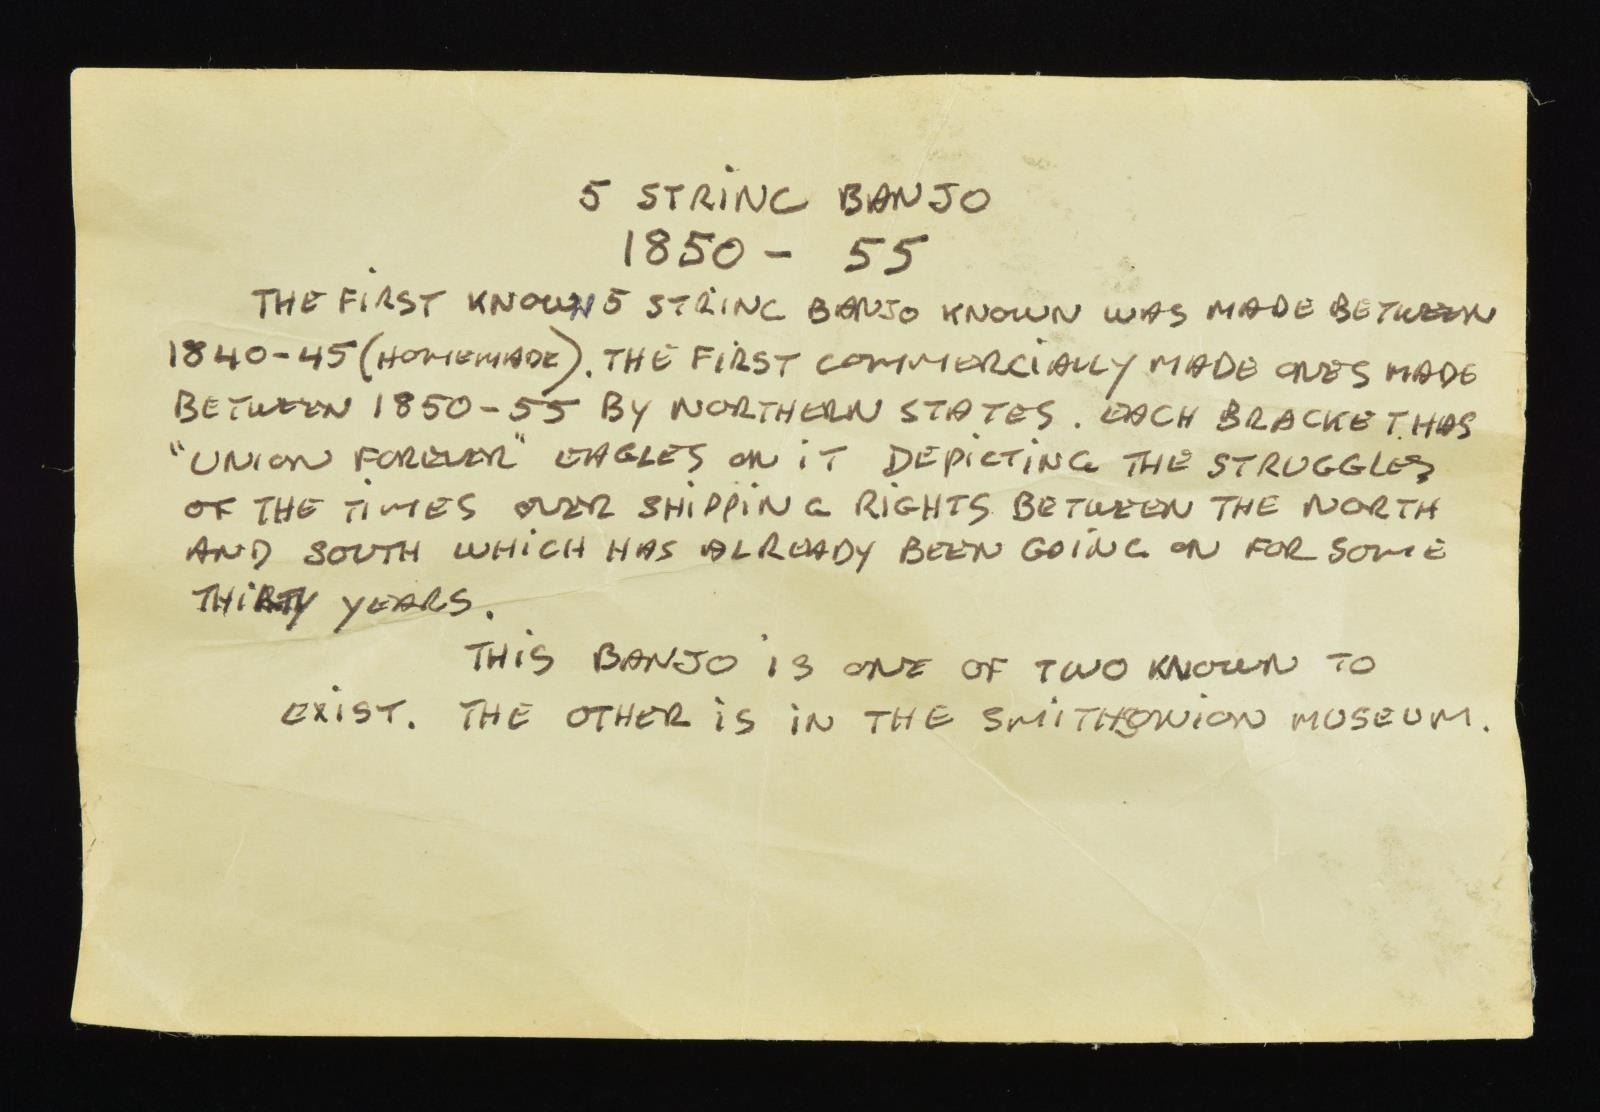 5 STRING BANJO
1850 - 55
THE FIRST KNOWN 5 STRING BANJO KNOWN WAS MADE BETWEEN
1840-45 (HOMEMADE). THE FIRST COMMERCIALLY MADE ONES MADE
BETWEEN 1850-55 BY NORTHERN STATES. EACH BRACKET HAS
"UNION FOREVER" EAGLES ON IT DEPICTING THE STRUGGLES
OF THE TIMES OVER SHIPPING RIGHTS BETWEEN THE NORTH
AND SOUTH WHICH HAS ALREADY BEEN GOING ON FOR SOME
THIRTY YEARS.
THIS BANJO IS ONE OF TWO KNOWN TO
EXIST. THE OTHER IS IN THE SMITHSONION MUSEUM.